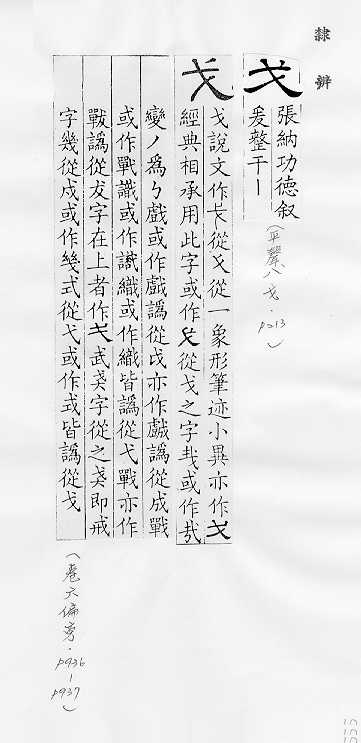 隸辨
戈
張納功德敘
爰整干丨
(平聲八戈．p213)
戈
戈說文作戈從弋從一象形筆迹小異亦作戈
經典相承用此字或作戈從戈之字哉或作哉
變丿為𠂊戲或作戲譌從戉亦作戲譌從成戰
或作戰識或作識織或作織皆譌從弋戰亦作
戰譌從犮字在上者作弋武𢦦字從之𢦦即戒
字幾從戍或作幾式從弋或作式皆譌從戈
(卷六偏旁．p936-p937)